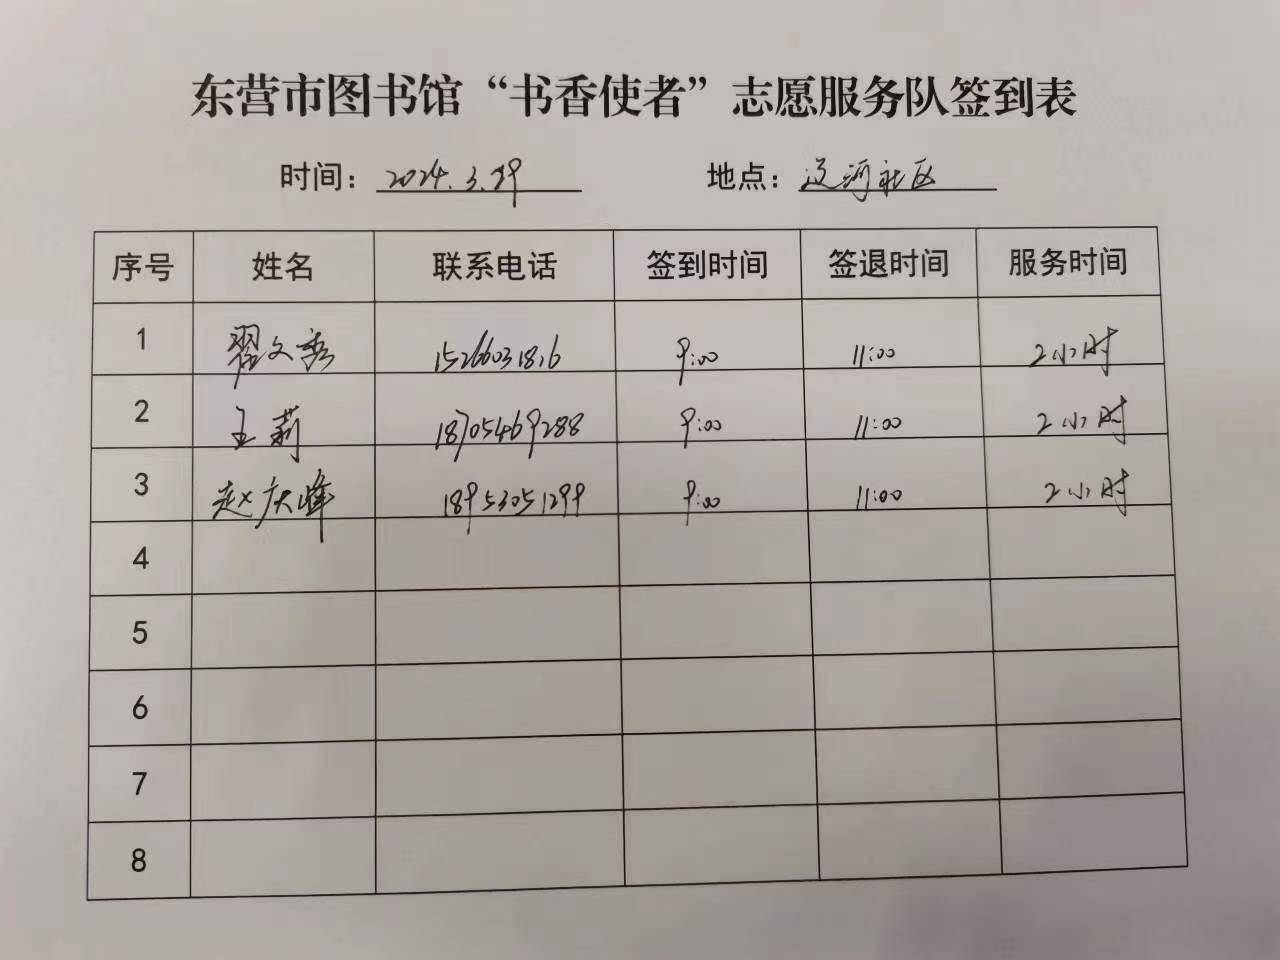 东营市图书馆“书香使者”志愿服务队签到表
时间：2024.3.29 地点：辽河社区
序号 姓名 联系电话 签到时间 签退时间 服务时间
1 翟文秀 15266031816 9:00 11:00 2小时
2 王莉 18705469288 9:00 11:00 2小时
3 赵庆峰 18953051299 9:00 11:00 2小时
4
5
6
7
8